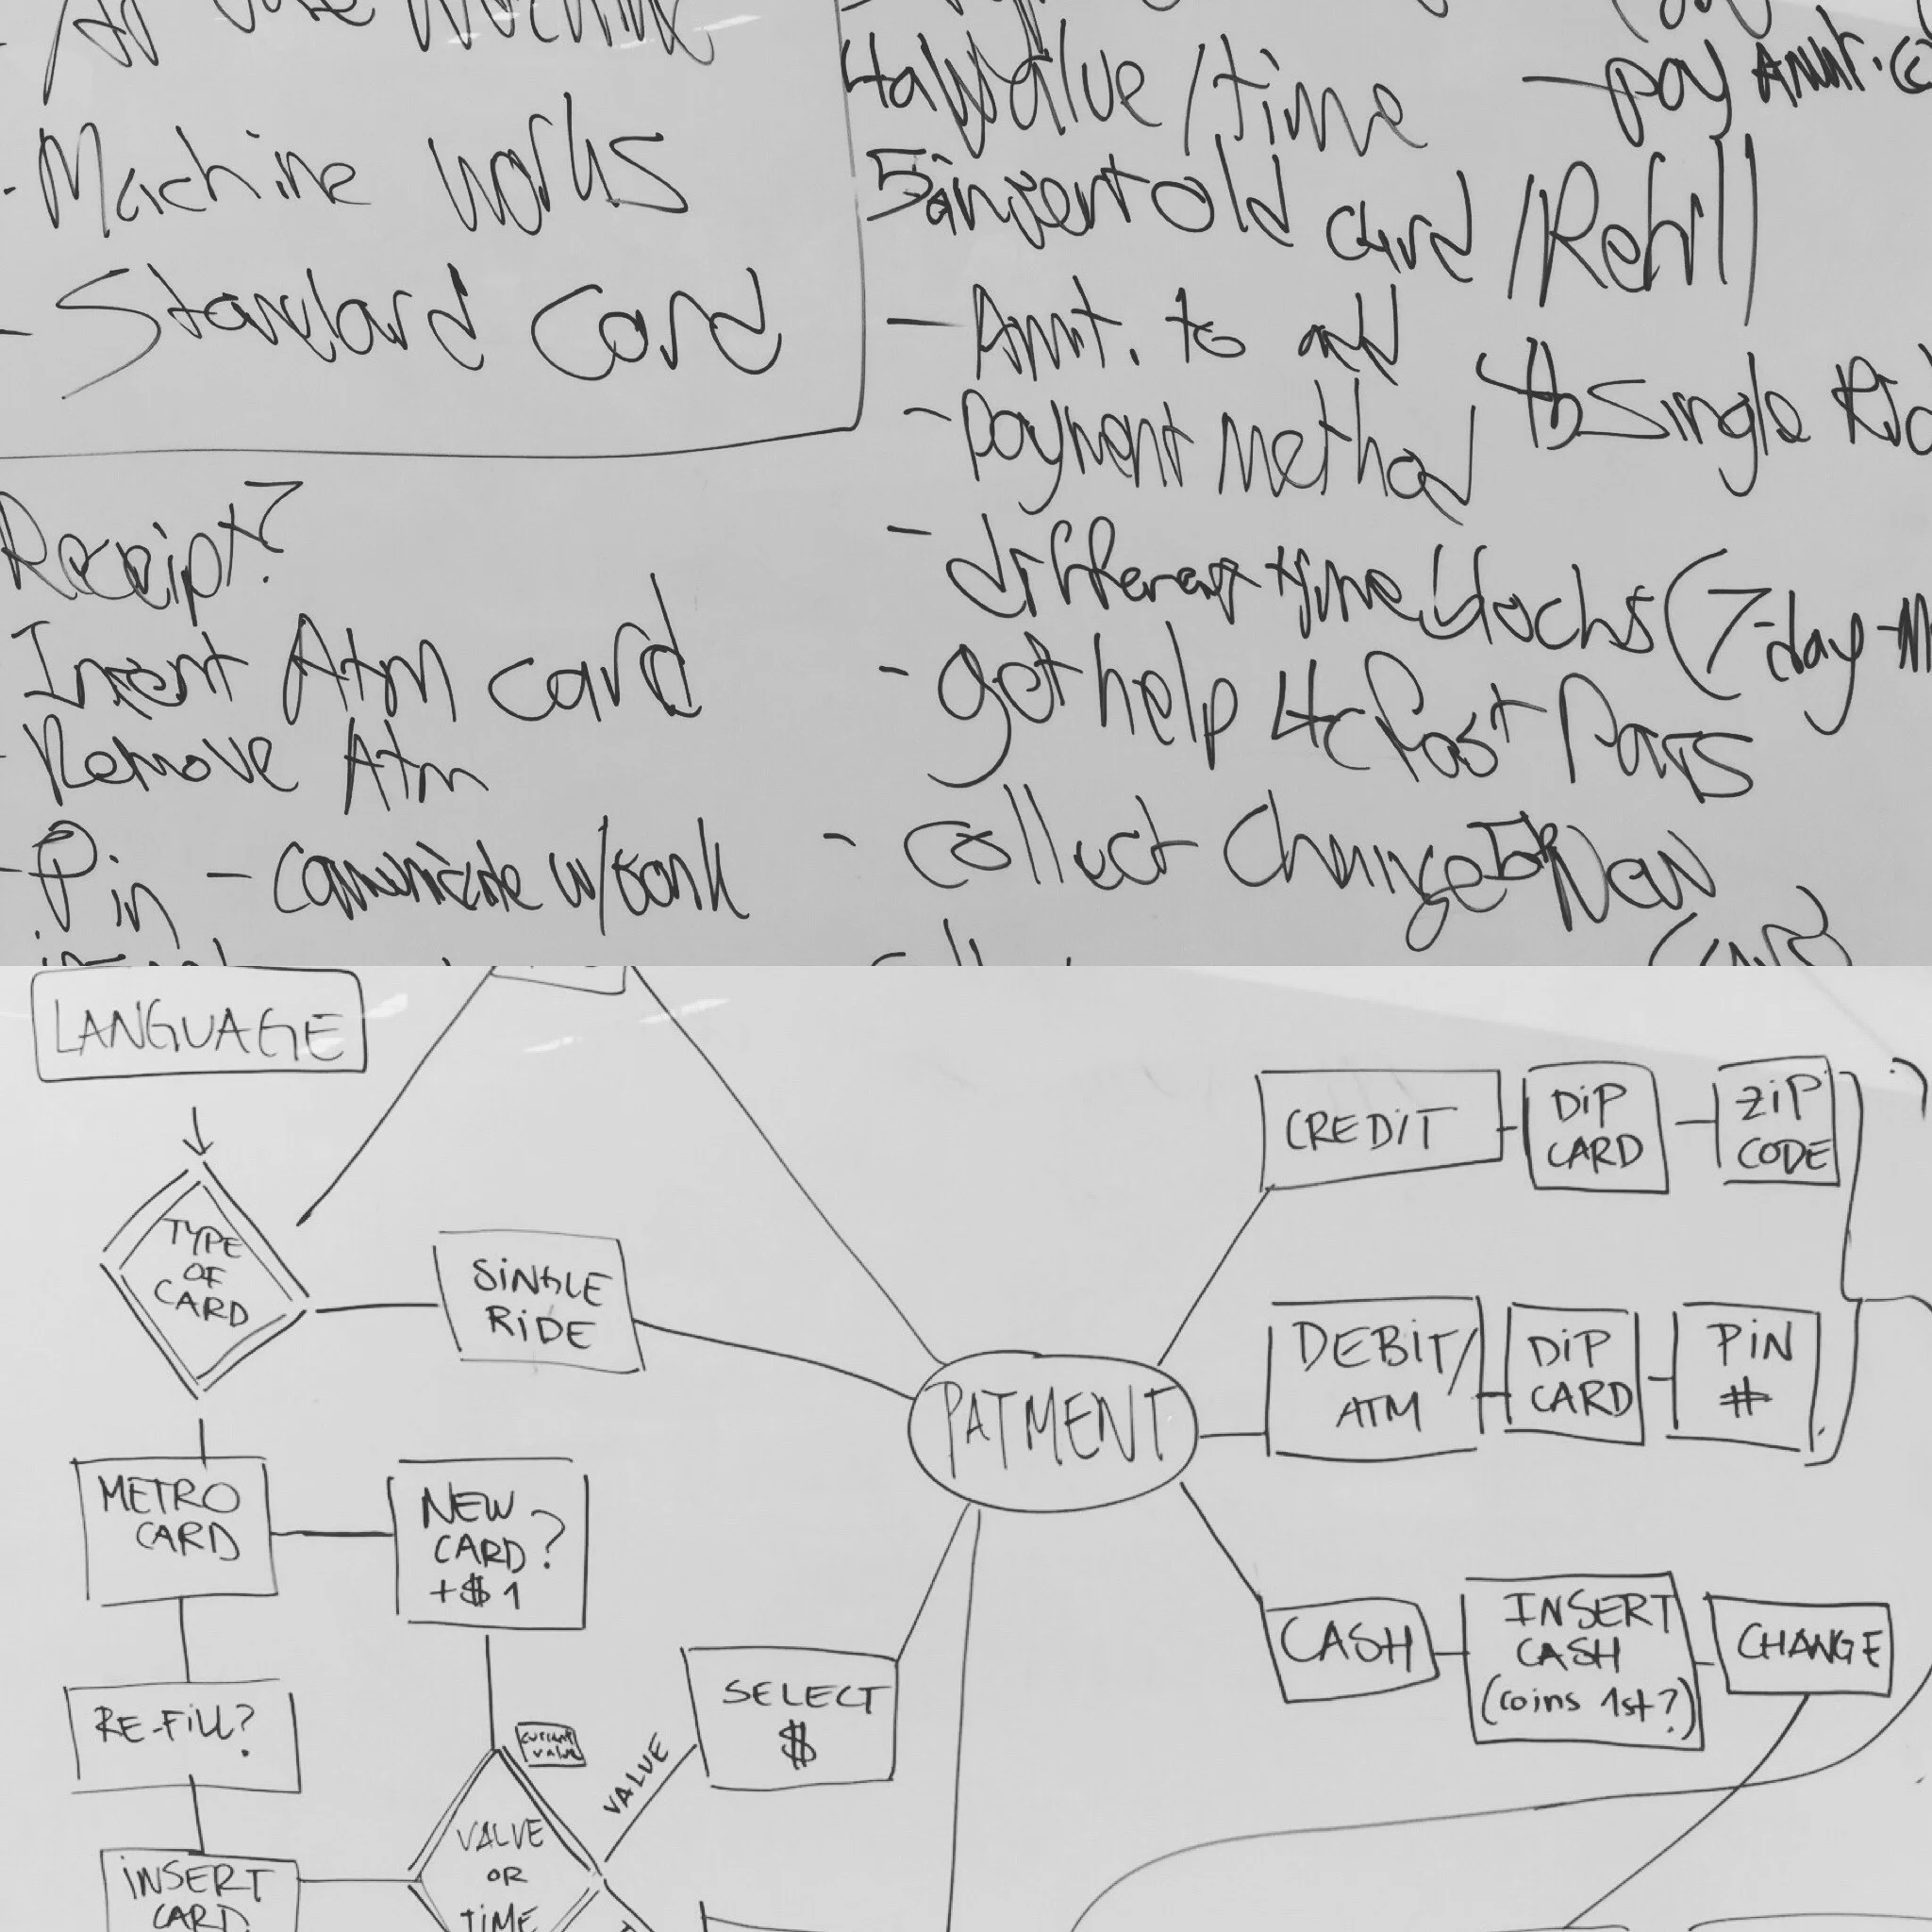 - Machine works
- Standard Card
Receipt?
Insert Atm card
Remove Atm
- Pin - communicate w/bank
4a value/time
5a insert old card /Refill
- Amt. to add
- payment method
- different time blocks (7-day-
- get help
- collect change
- pay Amt.
4b Single
4c Fast Pass
Now
LANGUAGE
TYPE
OF
CARD
SINGLE
RIDE
METRO
CARD
NEW
CARD?
+$1
RE-FILL?
INSERT
CARD
current
value
VALUE
OR
TIME
VALUE
SELECT
$
PATMENT
CREDIT
DIP
CARD
ZIP
CODE
DEBIT/
ATM
DIP
CARD
PIN
#
CASH
INSERT
CASH
(coins 1st?)
CHANGE